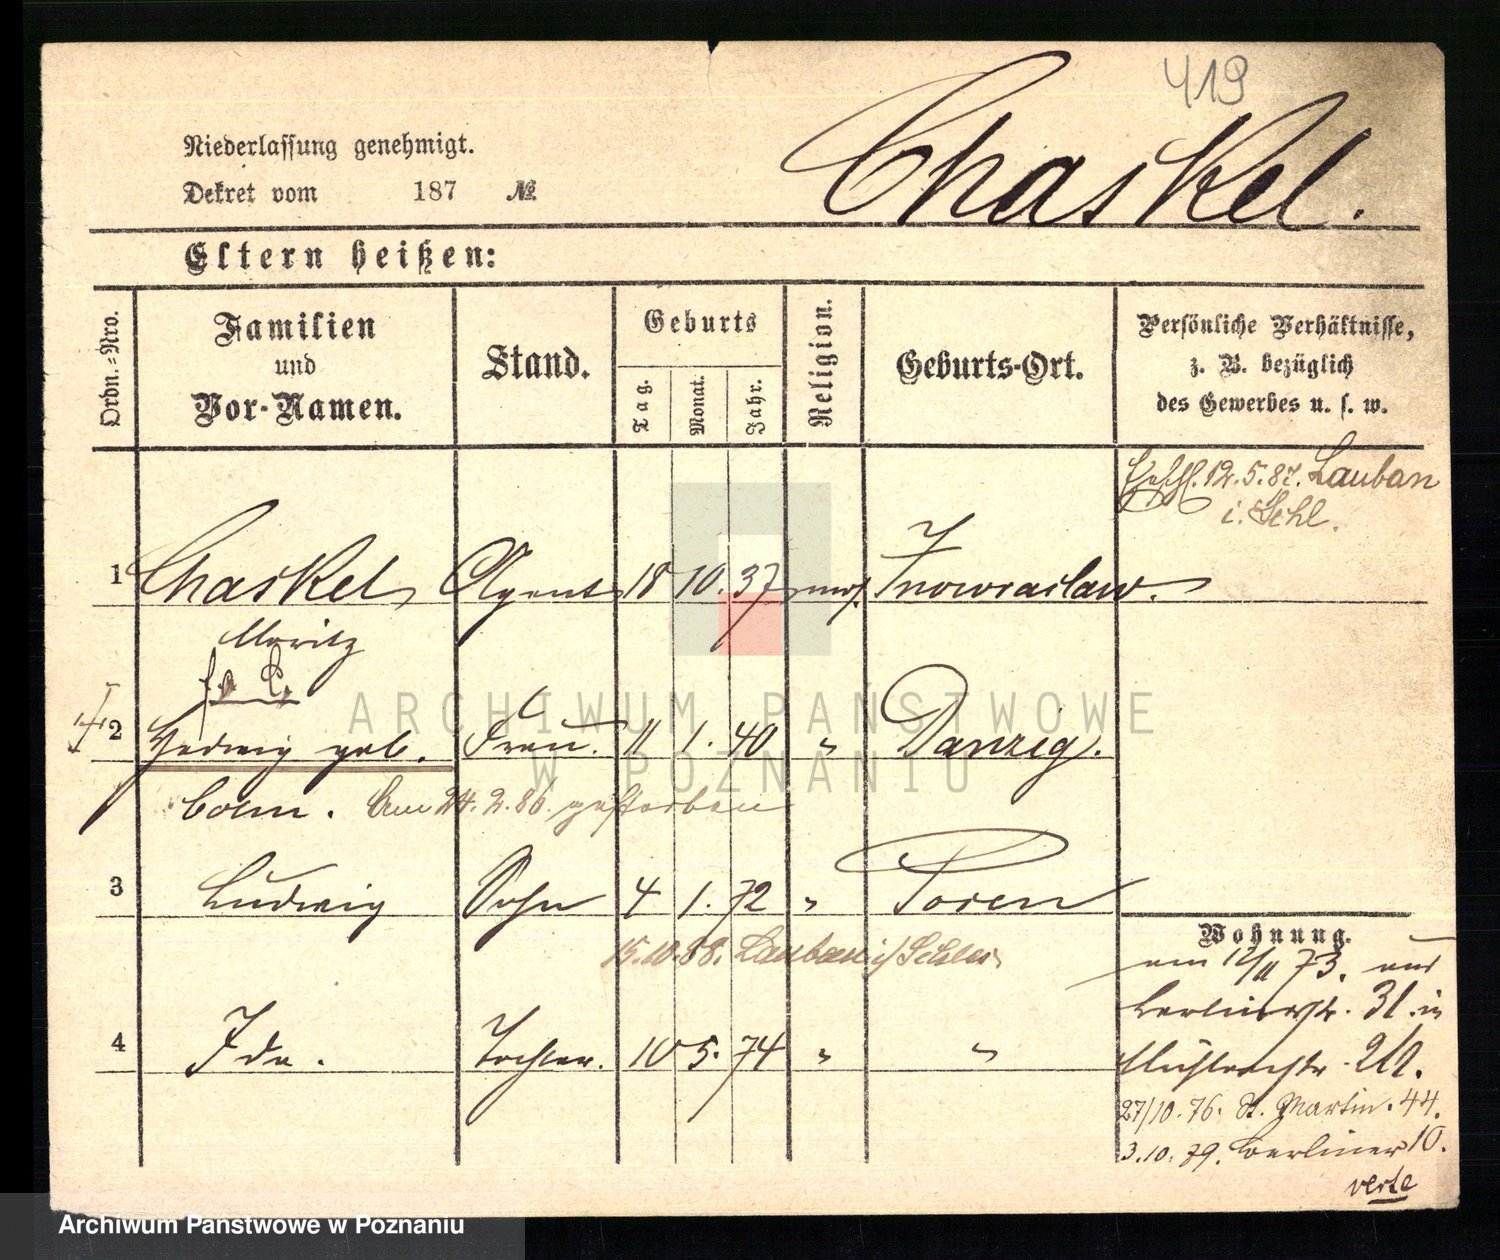 419
Niederlassung genehmigt.
Chaskel.
Dekret vom 187 №
Eltern heißen:
Ordn.=Nro.
Familien und Vor-Namen.
Stand.
Geburts
Tag.
Monat.
Jahr.
Religion.
Geburts-Ort.
Persönliche Verhältnisse,
z. B. bezüglich
des Gewerbes u. s. w.
12.5.87. Lauban
i. Schl.
1 Chaskel Agent 18 10. 37 mos. Inowraclaw.
Moritz
2 Hedwig geb. Frau. 11 1. 40 " Danzig.
Am 24.2.86. gestorben
3 Ludwig Sohn 4 1. 72 " Posen
15.10.88. Lauban i/ Schles
4 Ida. Tochter. 10 5. 74 " "
Wohnung.
am 12/11 73. aus
Berlinerstr. 31. in
21.
27/10.76. St. Martin. 44.
3.10.79. Berliner 10.
verte
ARCHIWUM PAŃSTWOWE
W POZNANIU
Archiwum Państwowe w Poznaniu